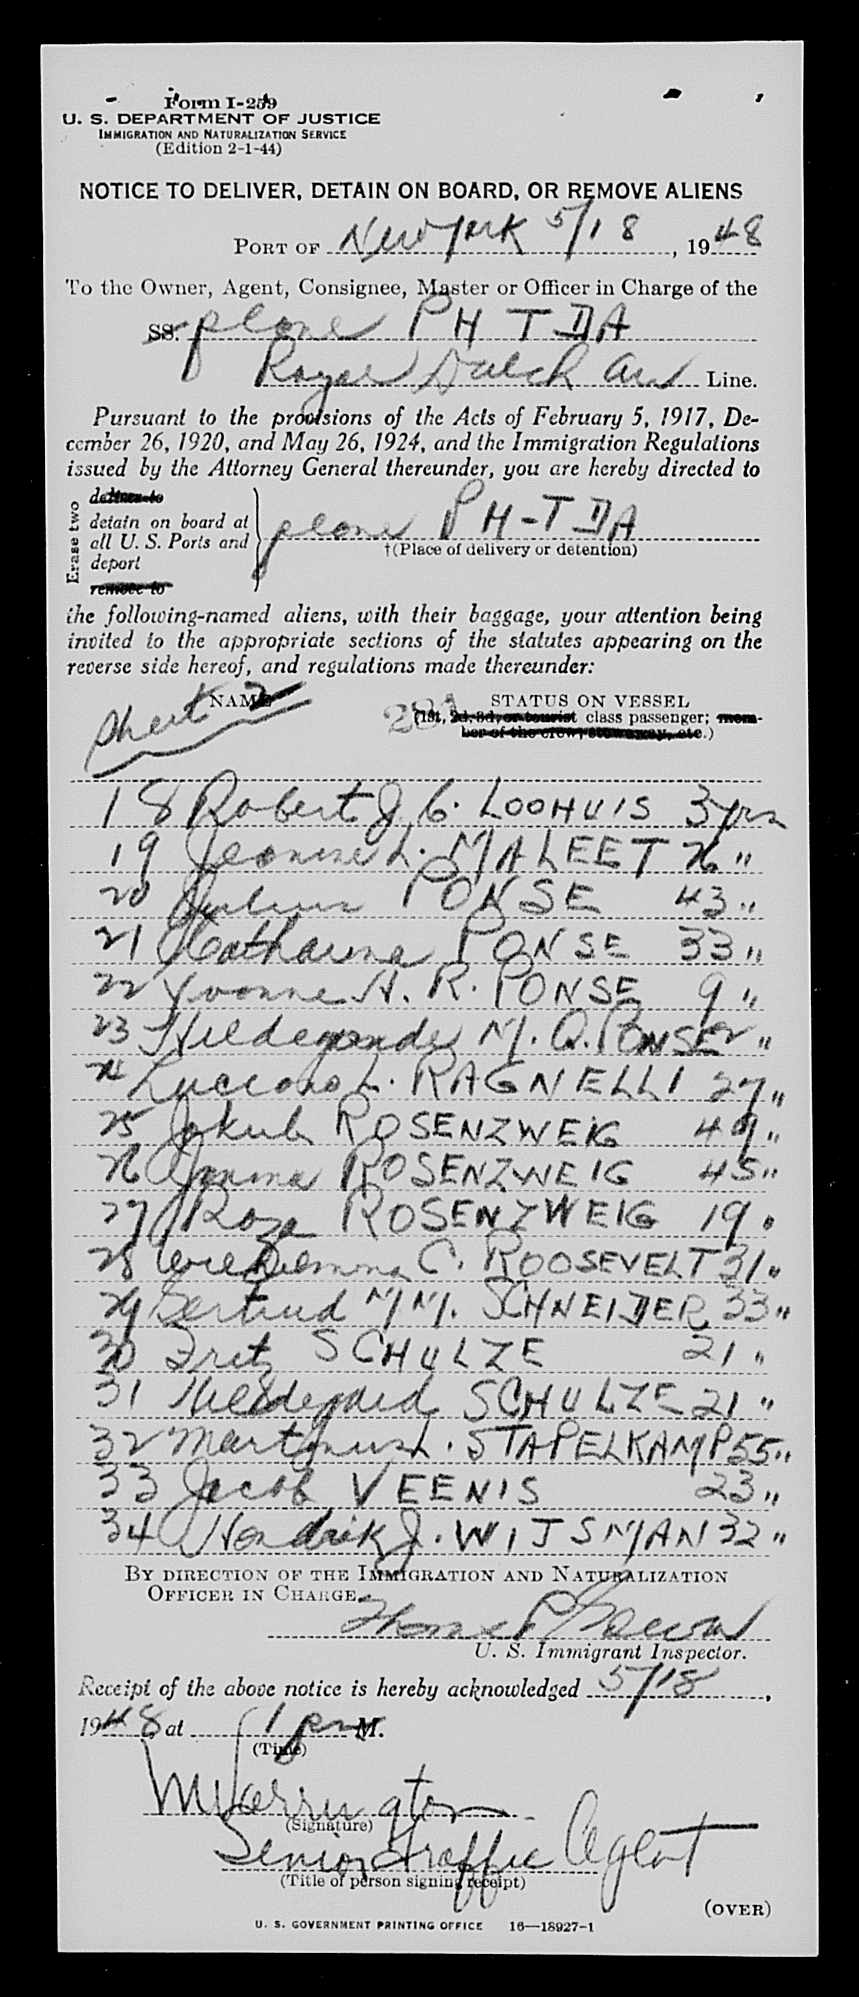 Form I-259
U. S. DEPARTMENT OF JUSTICE
IMMIGRATION AND NATURALIZATION SERVICE
(Edition 2-1-44)
NOTICE TO DELIVER, DETAIN ON BOARD, OR REMOVE ALIENS
PORT OF New York 5/18, 1948
To the Owner, Agent, Consignee, Master or Officer in Charge of the
SS. plane PH TDA
Royal Dutch Air Line.
Pursuant to the provisions of the Acts of February 5, 1917, De-
cember 26, 1920, and May 26, 1924, and the Immigration Regulations
issued by the Attorney General thereunder, you are hereby directed to
Erase two
deliver to
detain on board at
all U. S. Ports and
deport
remove to
plane PH-TDA
†(Place of delivery or detention)
the following-named aliens, with their baggage, your attention being
invited to the appropriate sections of the statutes appearing on the
reverse side hereof, and regulations made thereunder:
Sheet 2
NAME STATUS ON VESSEL
(1st, 2d, 3d, or tourist class passenger; mem-
ber of the crew, stowaway, etc.)
18 Robert J. C. LOOHUIS 3 yrs
19 Jeonine L. MALEET 26 "
20 Julius PONSE 43 "
21 Catharina PONSE 33 "
22 Yvonne H. R. PONSE 9 "
23 Hildegonde M. A. PONSE 2 "
24 Luciano L. RAGNELLI 27 "
25 Jakub ROSENZWEIG 49 "
26 Anna ROSENZWEIG 45 "
27 Roza ROSENZWEIG 19 "
28 Wilhelmina C. ROOSEVELT 31 "
29 Gertrud M M. SCHNEIDER 33 "
30 Fritz SCHULZE 21 "
31 Hildegard SCHULZE 21 "
32 Martinus L. STAPELKAMP 55 "
33 Jacob VEENIS 23 "
34 Hendrik J. WIJSMAN 32 "
BY DIRECTION OF THE IMMIGRATION AND NATURALIZATION
OFFICER IN CHARGE.
Thomas P.
U. S. Immigrant Inspector.
Receipt of the above notice is hereby acknowledged 5/18,
1948, at 1 pm M.
(Time)
(Signature)
Senior Traffic Agent
(Title of person signing receipt)
(OVER)
U. S. GOVERNMENT PRINTING OFFICE 16—18927-1